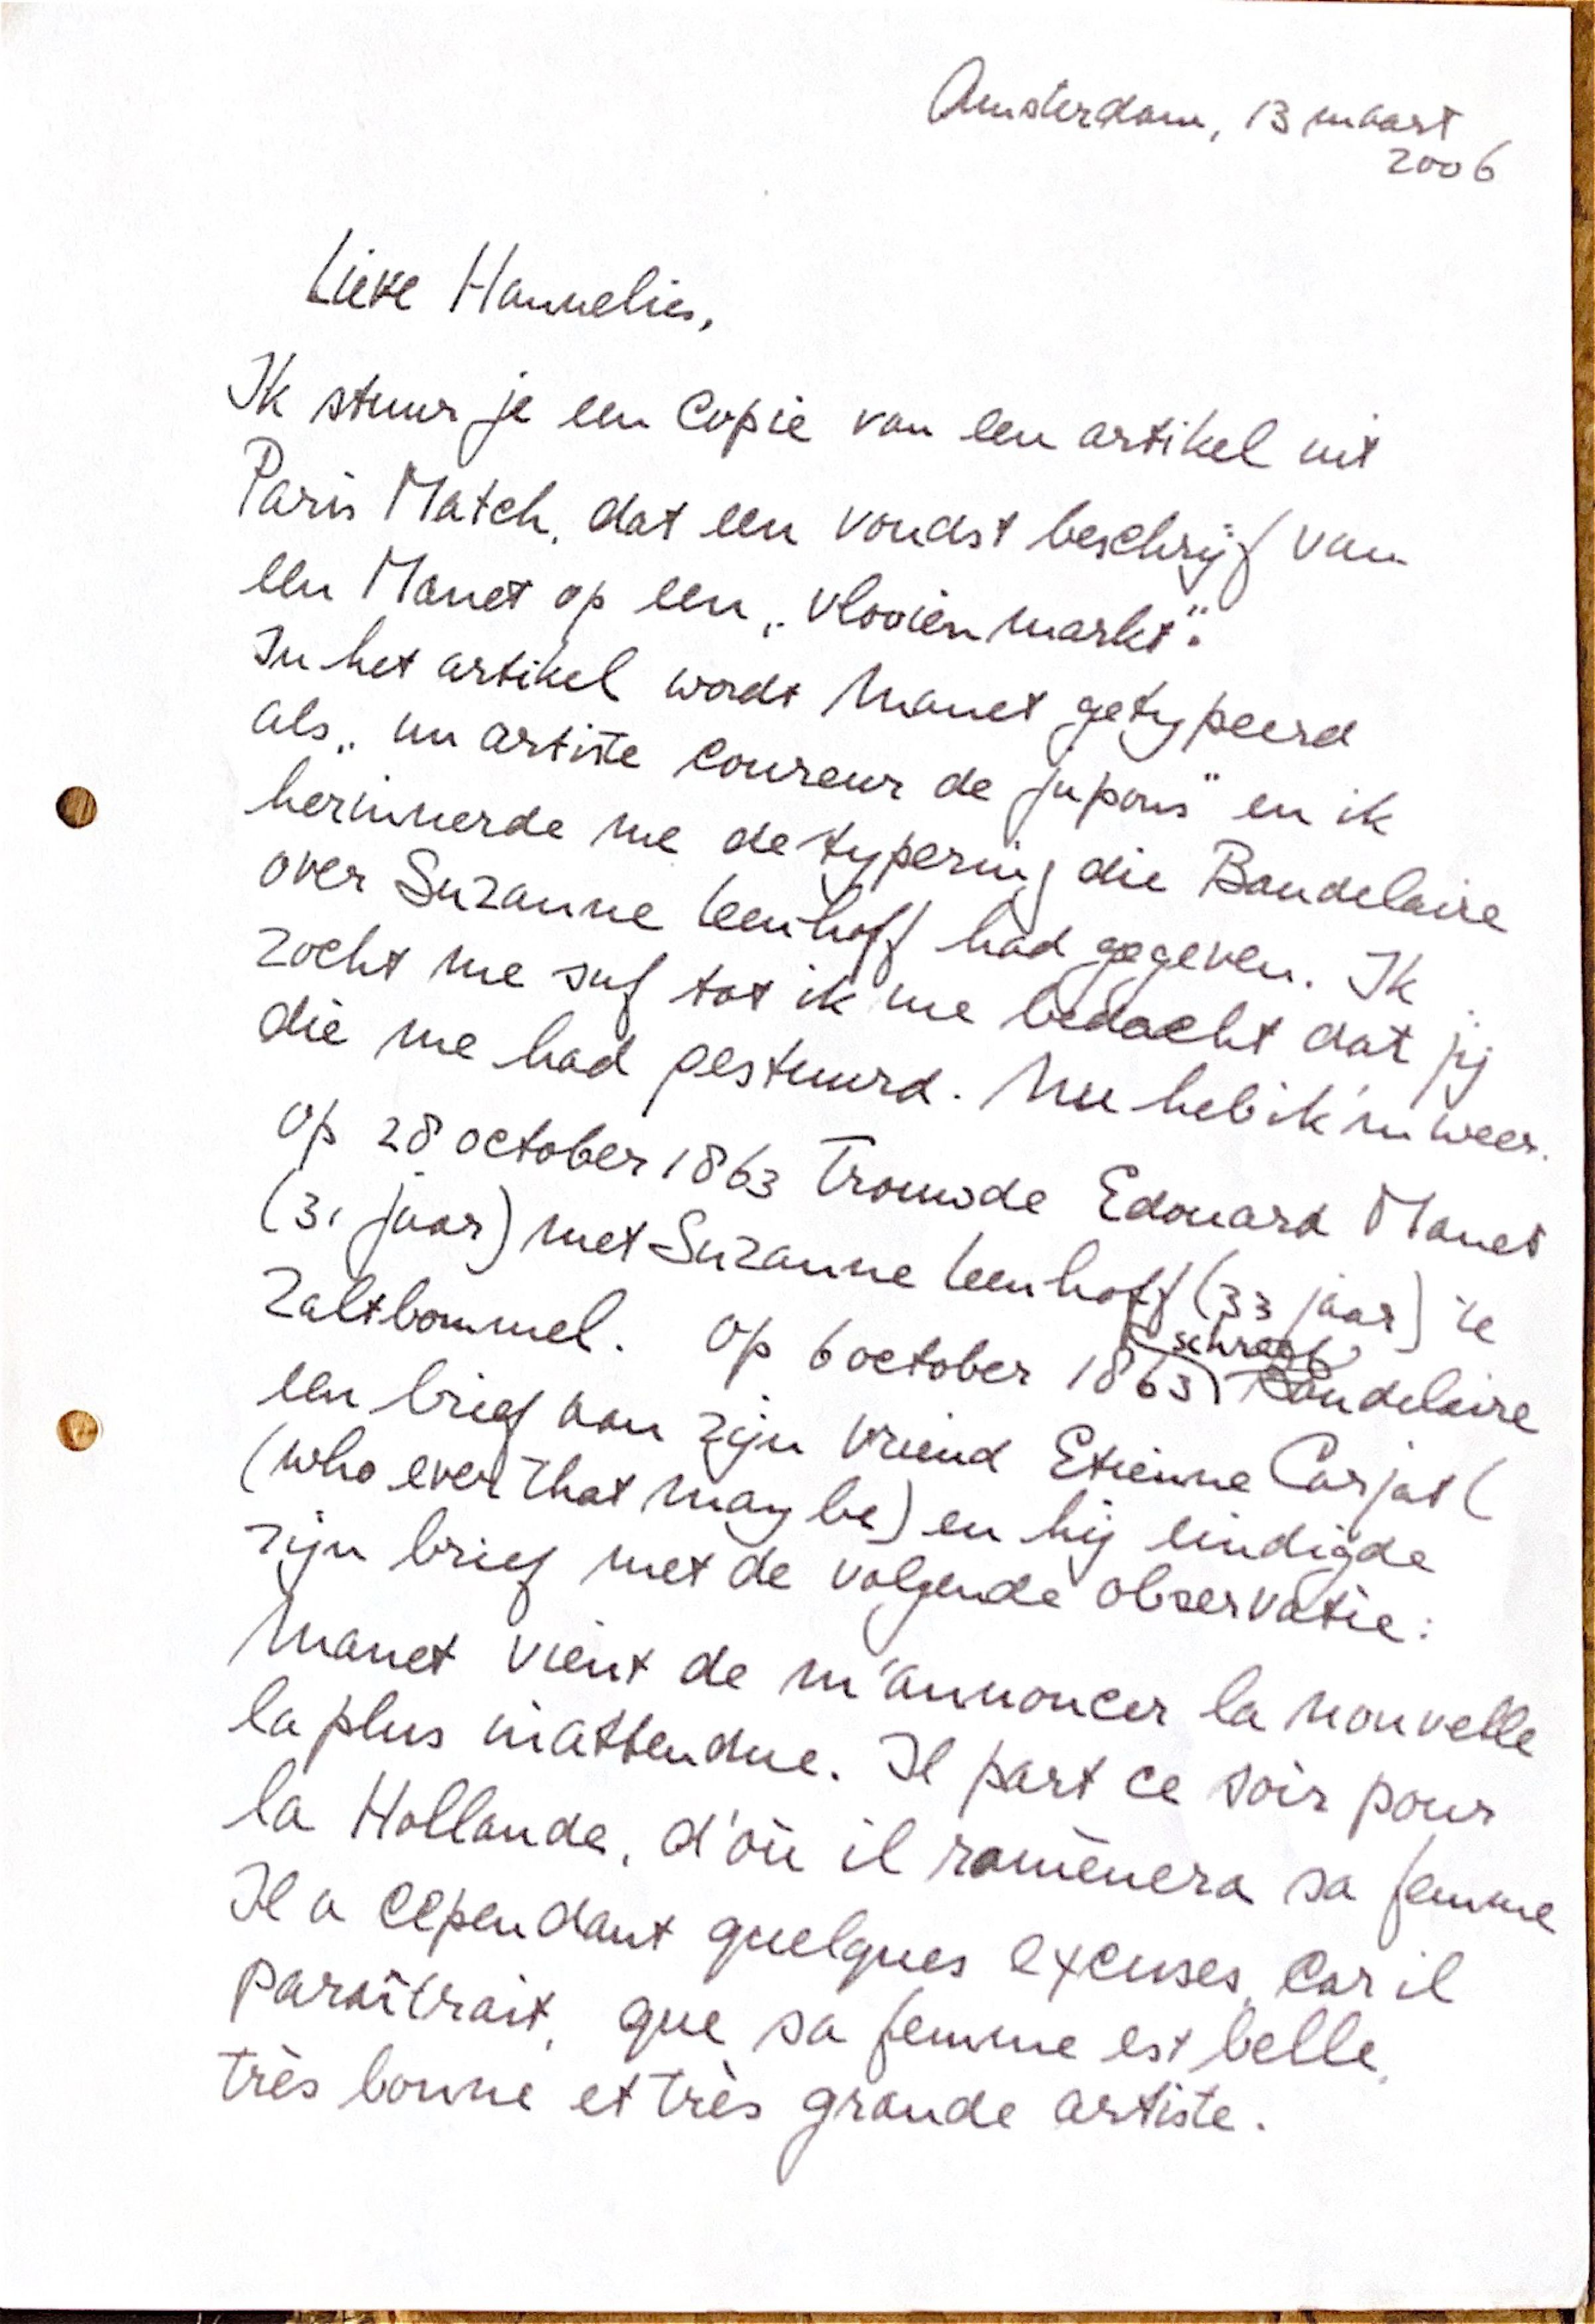 Amsterdam, 13 maart
2006
Lieve Hannelies,
Ik stuur je een copie van een artikel uit
Paris Match, dat een vondst beschrijf van
een Manet op een „vlooienmarkt".
In het artikel wordt Manet getypeerd
als „un artiste coureur de jupons" en ik
herinnerde me de typering die Baudelaire
over Suzanne Leenhoff had gegeven. Ik
zocht me suf tot ik me bedacht dat jij
die me had gestuurd. Nu heb ik 'm weer.
Op 28 october 1863 trouwde Edouard Manet
(31 jaar) met Suzanne Leenhoff (33 jaar) te
Zaltbommel. Op 6 october 1863 schreef Baudelaire
een brief aan zijn vriend Etienne Carjat (
(who ever that may be) en hij eindigde
zijn brief met de volgende observatie:
Manet vient de m'annoncer la nouvelle
la plus inattendue. Il part ce soir pour
la Hollande, d'où il ramènera sa femme
Il a cependant quelques excuses, car il
paraîtrait, que sa femme est belle,
très bonne et très grande artiste.